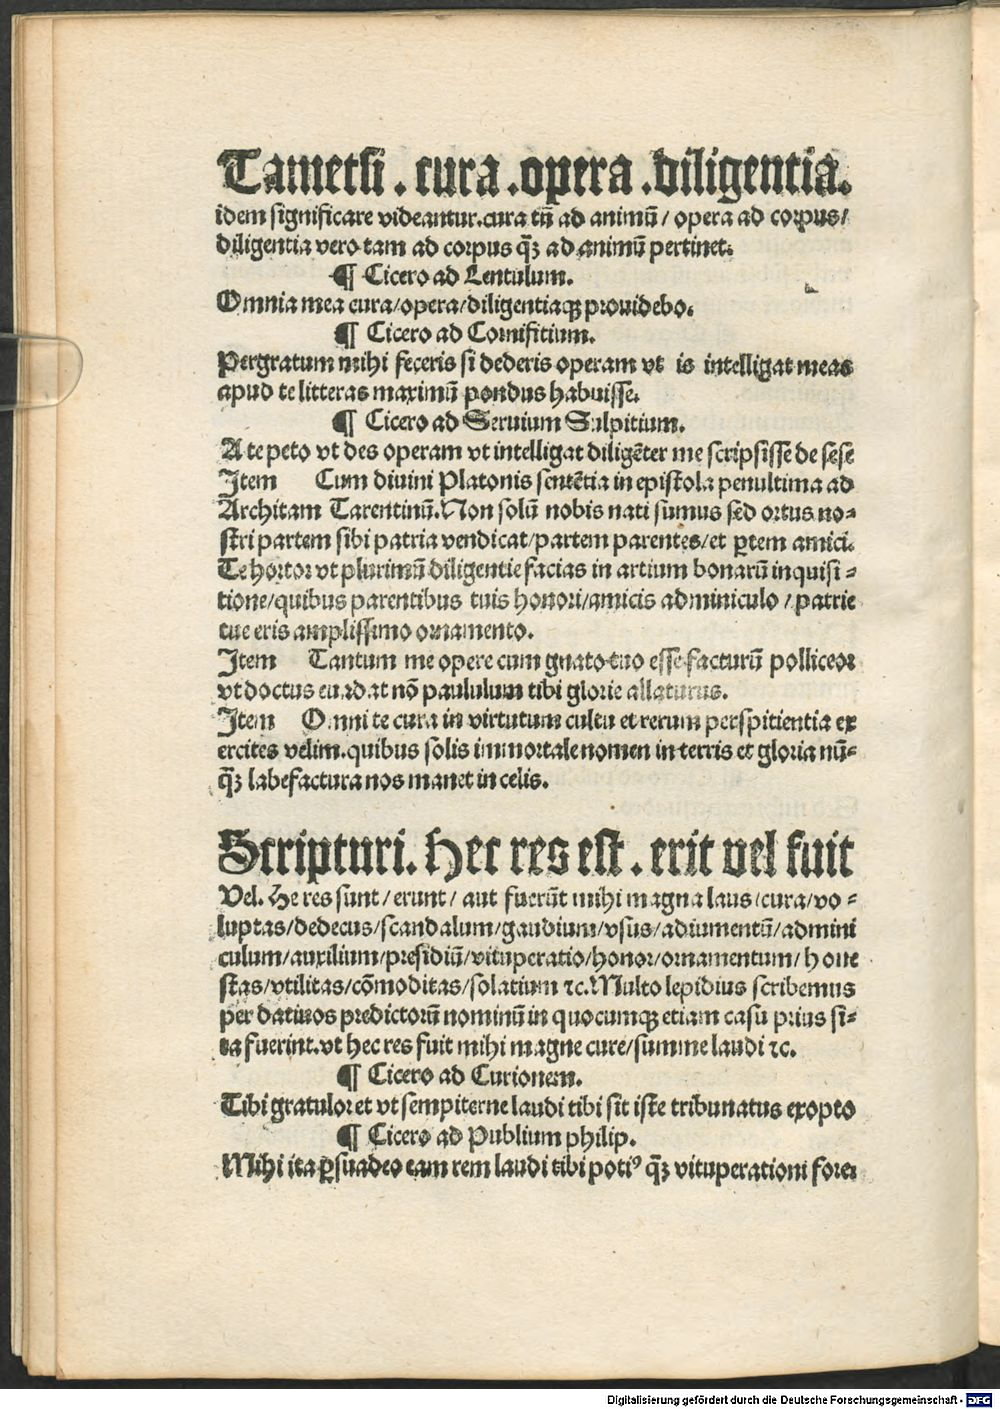 Tametsi . cura . opera . diligentia.
idem significare videantur.cura tñ ad animū / opera ad corpus/
diligentia vero tam ad corpus q̃ꝫ ad animū pertinet.
¶ Cicero ad Lentulum.
Omnia mea cura/opera/diligentiaqꝫ prouidebo.
¶ Cicero ad Cornifitium.
Pergratum mihi feceris si dederis operam vt is intelligat meas
apud te litteras maximū pondus habuisse.
¶ Cicero ad Seruium Sulpitium.
A te peto vt des operam vt intelligat diligēter me scripsisse de sese
Item Cum diuini Platonis sentētia in epistola penultima ad
Architam Tarentinū. Non solū nobis nati sumus sed ortus no⸗
stri partem sibi patria vendicat/partem parentes/et ꝑtem amici.
Te hortor vt plurimū diligentie facias in artium bonarū inquisi⸗
tione/quibus parentibus tuis honori/amicis adminiculo / patrie
tue eris amplissimo ornamento.
Item Tantum me opere cum gnato tuo esse facturū polliceor
vt doctus euadat nō paululum tibi glorie allaturus.
Item Omni te cura in virtutum cultu et rerum perspitientia ex
ercites velim.quibus solis immortale nomen in terris et gloria nū⸗
q̃ꝫ labefactura nos manet in celis.
Scripturi. Hec res est . erit vel fuit
Vel. He res sunt / erunt / aut fuerūt mihi magna laus/cura/vo⸗
luptas/dedecus/scandalum/gaudium/vsus/adiumentū/admini
culum/auxilium/presidiū/vituperatio/honor/ornamentum/hone
stas/vtilitas/cōmoditas/solatium ⁊c. Multo lepidius scribemus
per datiuos predictorū nominū in quocumqꝫ etiam casu prius si⸗
ta fuerint.vt hec res fuit mihi magne cure/summe laudi ⁊c.
¶ Cicero ad Curionem.
Tibi gratulor et vt sempiterne laudi tibi sit iste tribunatus exopto
¶ Cicero ad Publium philip.
Mihi ita ꝑsuadeo eam rem laudi tibi potiꝰ q̃ꝫ vituperationi fore.
Digitalisierung gefördert durch die Deutsche Forschungsgemeinschaft - DFG